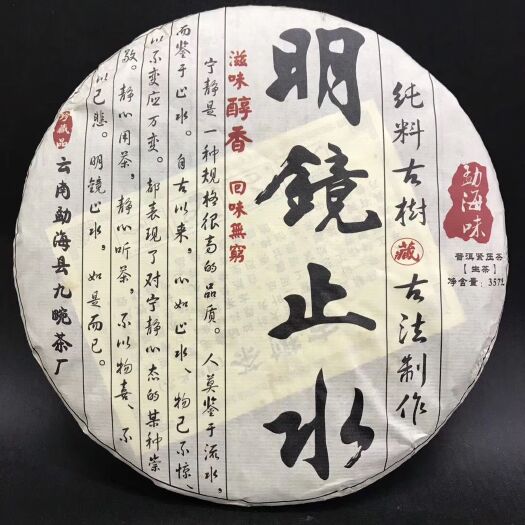 勐海味
普洱紧压茶
【生茶】
净含量：357
纯料古樹 藏 古法制作
明鏡止水
滋味醇香 回味無窮
宁静是一种规格很高的品质。人莫鉴于流水，
而鉴于止水。自古以来，心如止水、物己不惊、
以不变应万变。都表现了对宁静心态的某种崇
敬。静心用茶，静心听茶，不以物喜、不
以己悲。明镜止水，如是而已。
珍藏品 云南勐海县九晼茶厂